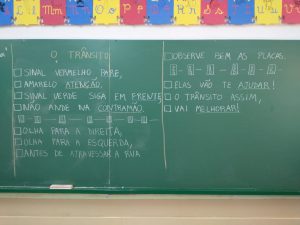 Ll Mm Nn Oo Pp Qq Rr Ss Tt Uu Vv
O TRÂNSITO
SINAL VERMELHO PARE,
AMARELO ATENÇÃO.
SINAL VERDE SIGA EM FRENTE
NÃO ANDE NA CONTRAMÃO.
OLHA PARA A DIREITA,
OLHA PARA A ESQUERDA,
ANTES DE ATRAVESSAR A RUA
OBSERVE BEM AS PLACAS.
ELAS VÃO TE AJUDAR!
O TRÂNSITO ASSIM,
VAI MELHORAR!